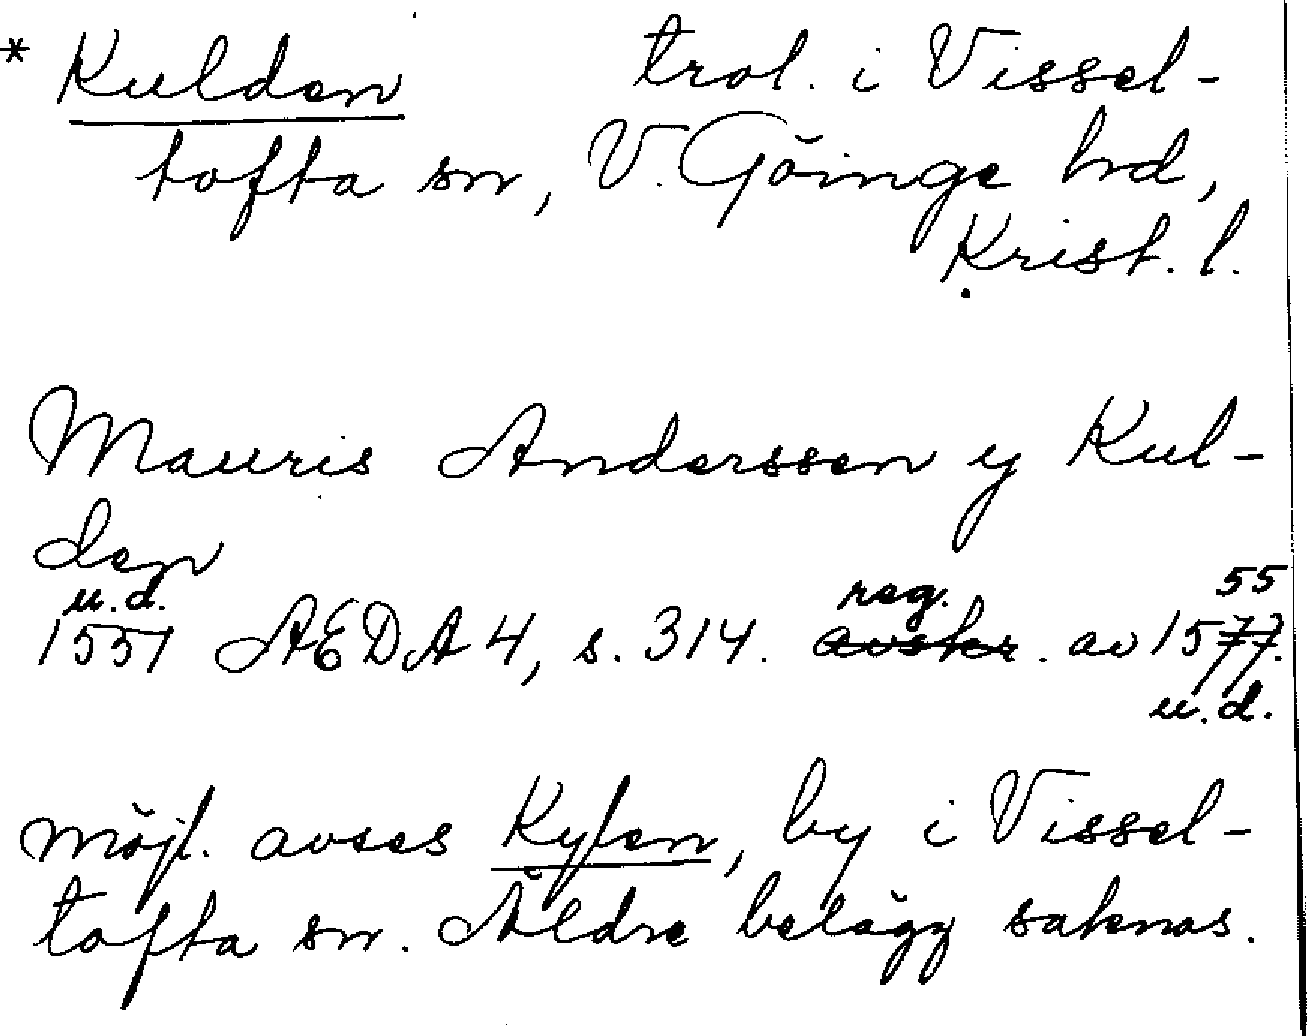 * Kulden trol. i Vissel-
tofta sn, V. Göinge hd,
Krist. l.
Mauris Anderssen y Kul-
den
u.d. reg. 55
1551 AEDA 4, s. 314. avskr. av 1577.
u.d.
möjl. avses Kylen, by i Vissel-
tofta sn. Äldre belägg saknas.